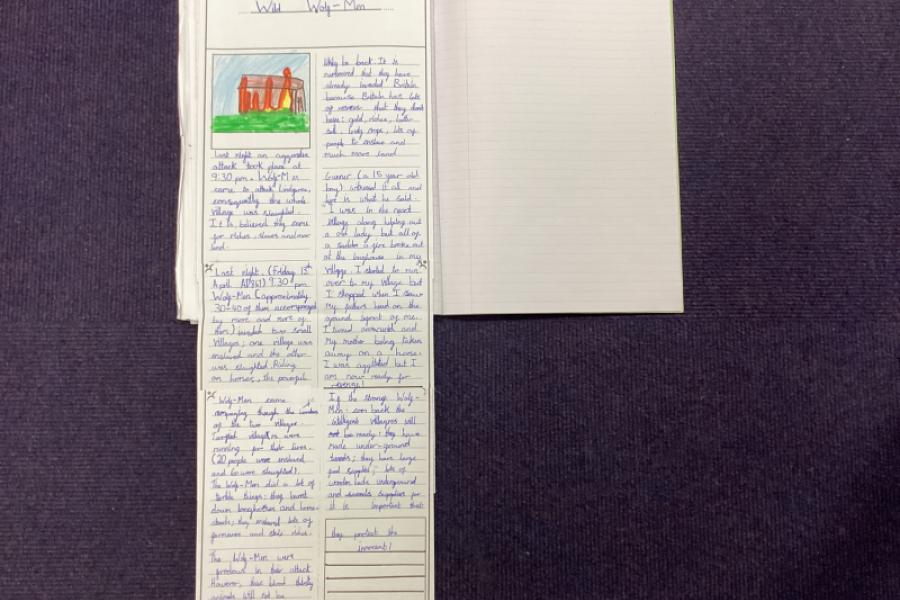 Wild Wolf-Men
Last night an aggressive
attack took place at
9:30 pm. Wolf-Men
came to attack
consequently the whole
village was
It is believed they came
for riches, slaves and
land.
Last night, (Friday 13th
April AD 861) 9.30 pm
Wolf-Men (approximatly
30-40 of them
by more and more of
them) two small
villages; one village was
enslaved and the other
was Riding
on horses, the powerful
Wolf-Men came
rampaging through the
of the two villages.
were
running for their lives.
(20 people were enslaved
and 60 were
The Wolf-Men did a lot of
terrible things: they burnt
down longhouses and home-
steads; they lots of
and stole riches.
The Wolf-Men were
in their attack
However, these blood thirsty
animals will not be
likely be back. It is
rumoured that they have
already invaded Britain
because Britain have lots
of that they don't
have: gold, riches, better
soil, crops, lots of
people to enslave and
much more land
Gunner (a 15 year old
boy) it all and
here is what he said.
"I was in the next
village along helping out
a old lady but all of
a sudden a fire broke out
at the longhouse in my
village. I started to run
over to my village but
I stopped when I saw
my fathers head on the
ground of me.
I turned and
my mother being taken
away on a horse.
I was but I
am now ready for
revenge!
If the strong Wolf-
Men come back the
villagers will
be ready: they have
made under-ground
they have large
food supplies; lots of
underground
and supplies for
it is important that
they protect the
innocent!